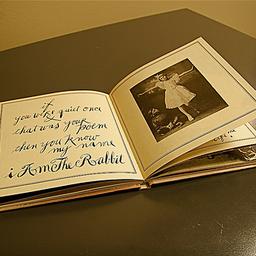 if
you were quiet once
& that was your poem
then you know
my name
i Am The Rabbit